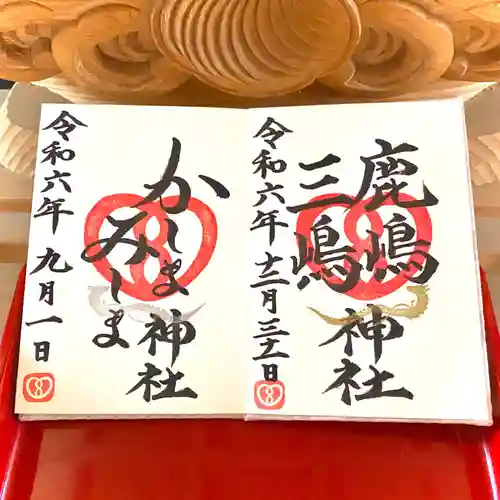 鹿嶋
三嶋
神社
令和六年十二月三十一日
かしま
みしま
神社
令和六年九月一日